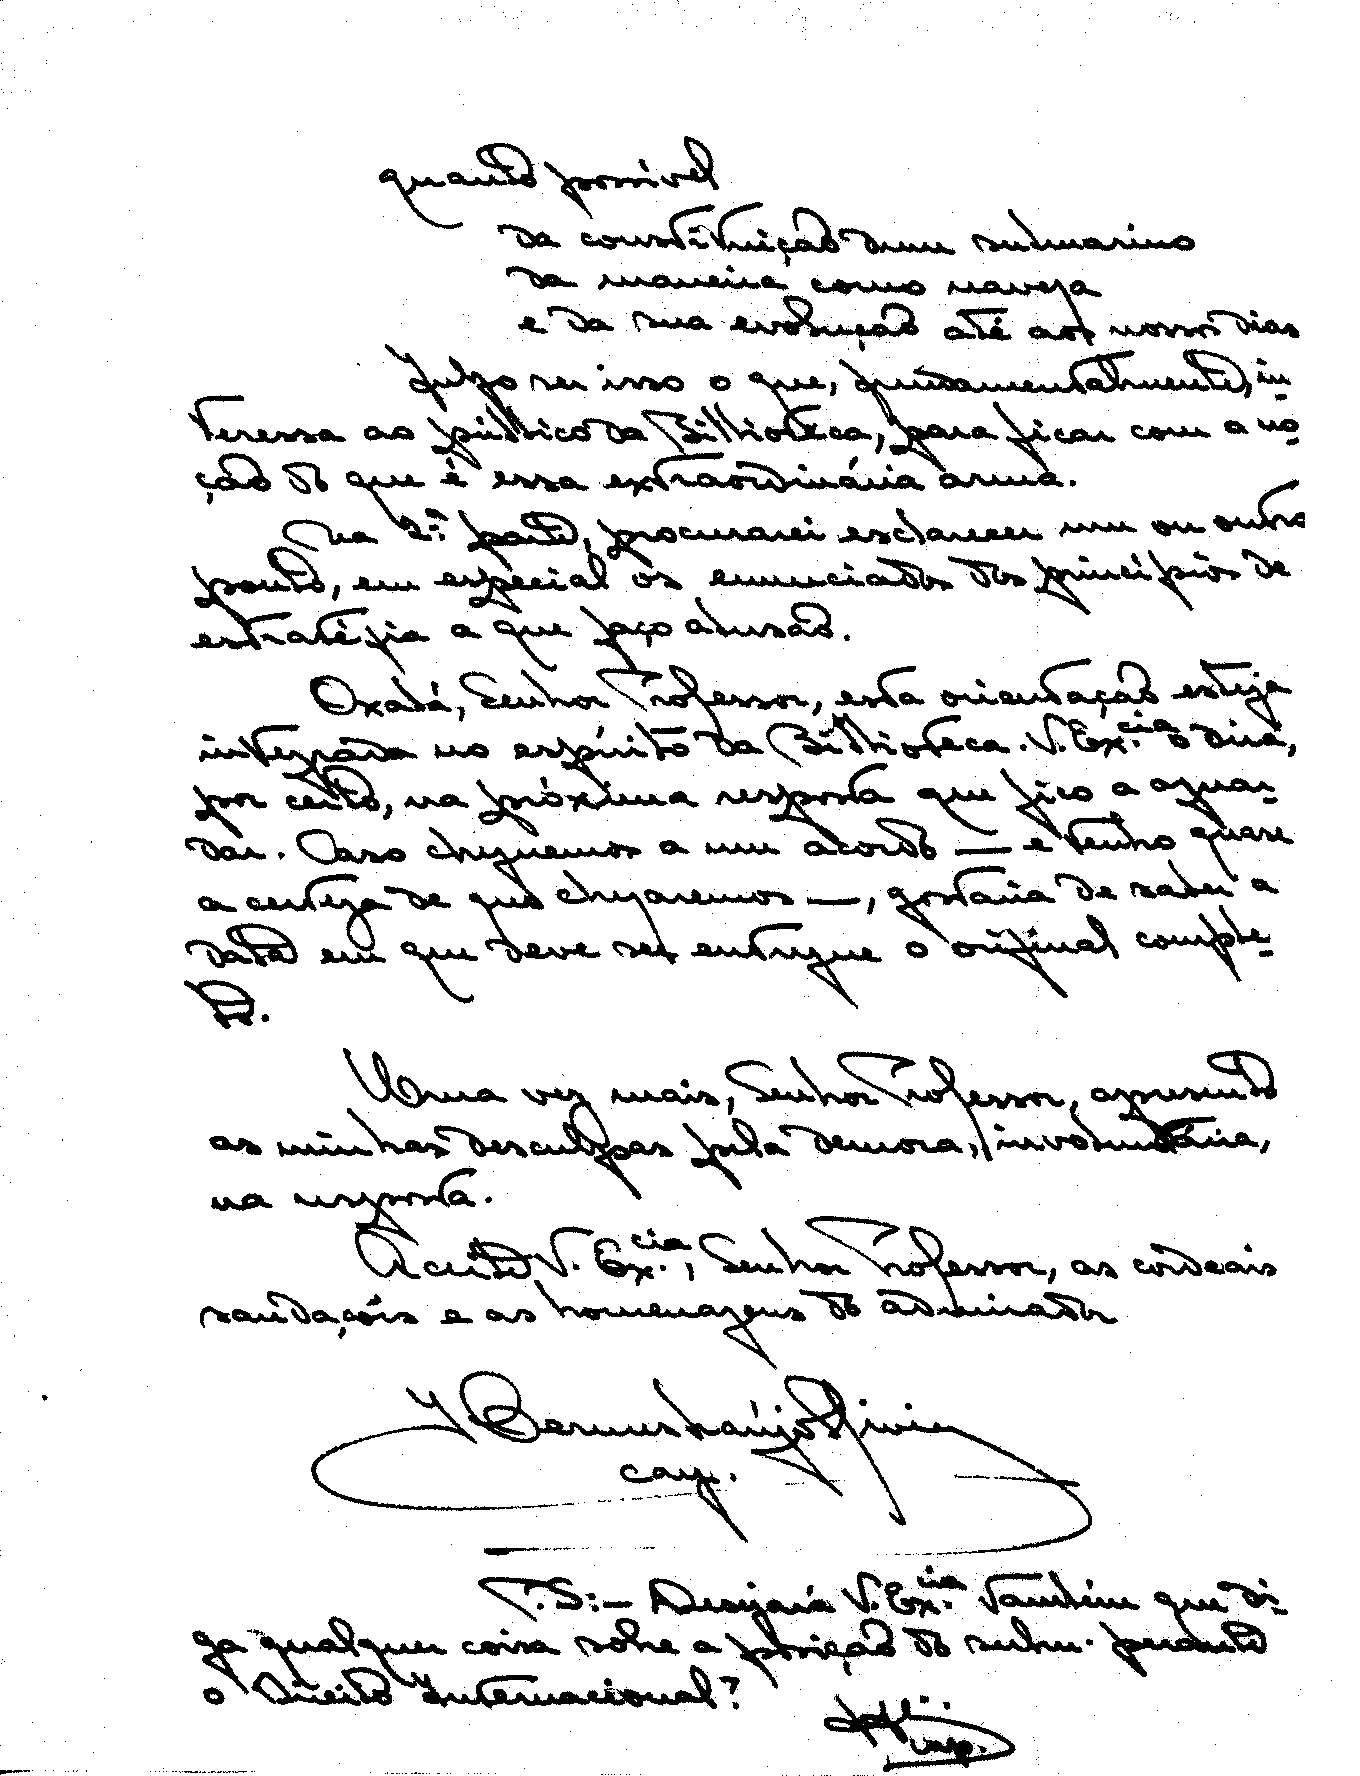 quanto possível
da constituição dum submarino
da maneira como navega
e da sua evolução até aos nossos dias
Julgo ser isso o que, fundamentalmente, in-
teressa ao público da Biblioteca, para ficar com a no-
ção do que é essa extraordinária arma.
Na 2.ª parte, procurarei esclarecer um ou outro
ponto, em especial os enunciados dos princípios de
estratégia a que faço alusão.
Oxalá, Senhor Professor, esta orientação esteja
integrada no espírito da Biblioteca. V. Ex.cia o dirá,
por certo, na próxima resposta que fico a aguar-
dar. Caso cheguemos a um acordo — e tenho quase
a certeza de que chegaremos —, gostaria de saber a
data em que deve ser entregue o original comple-
to.
Uma vez mais, Senhor Professor, apresento
as minhas desculpas pela demora, involuntária,
na resposta.
Aceite V. Ex.cia, Senhor Professor, as cordeais
saudações e as homenagens do admirador
P.S:— Desejará V. Ex.cia também que di-
ga qualquer coisa sobre a posição do subm. perante
o Direito Internacional?